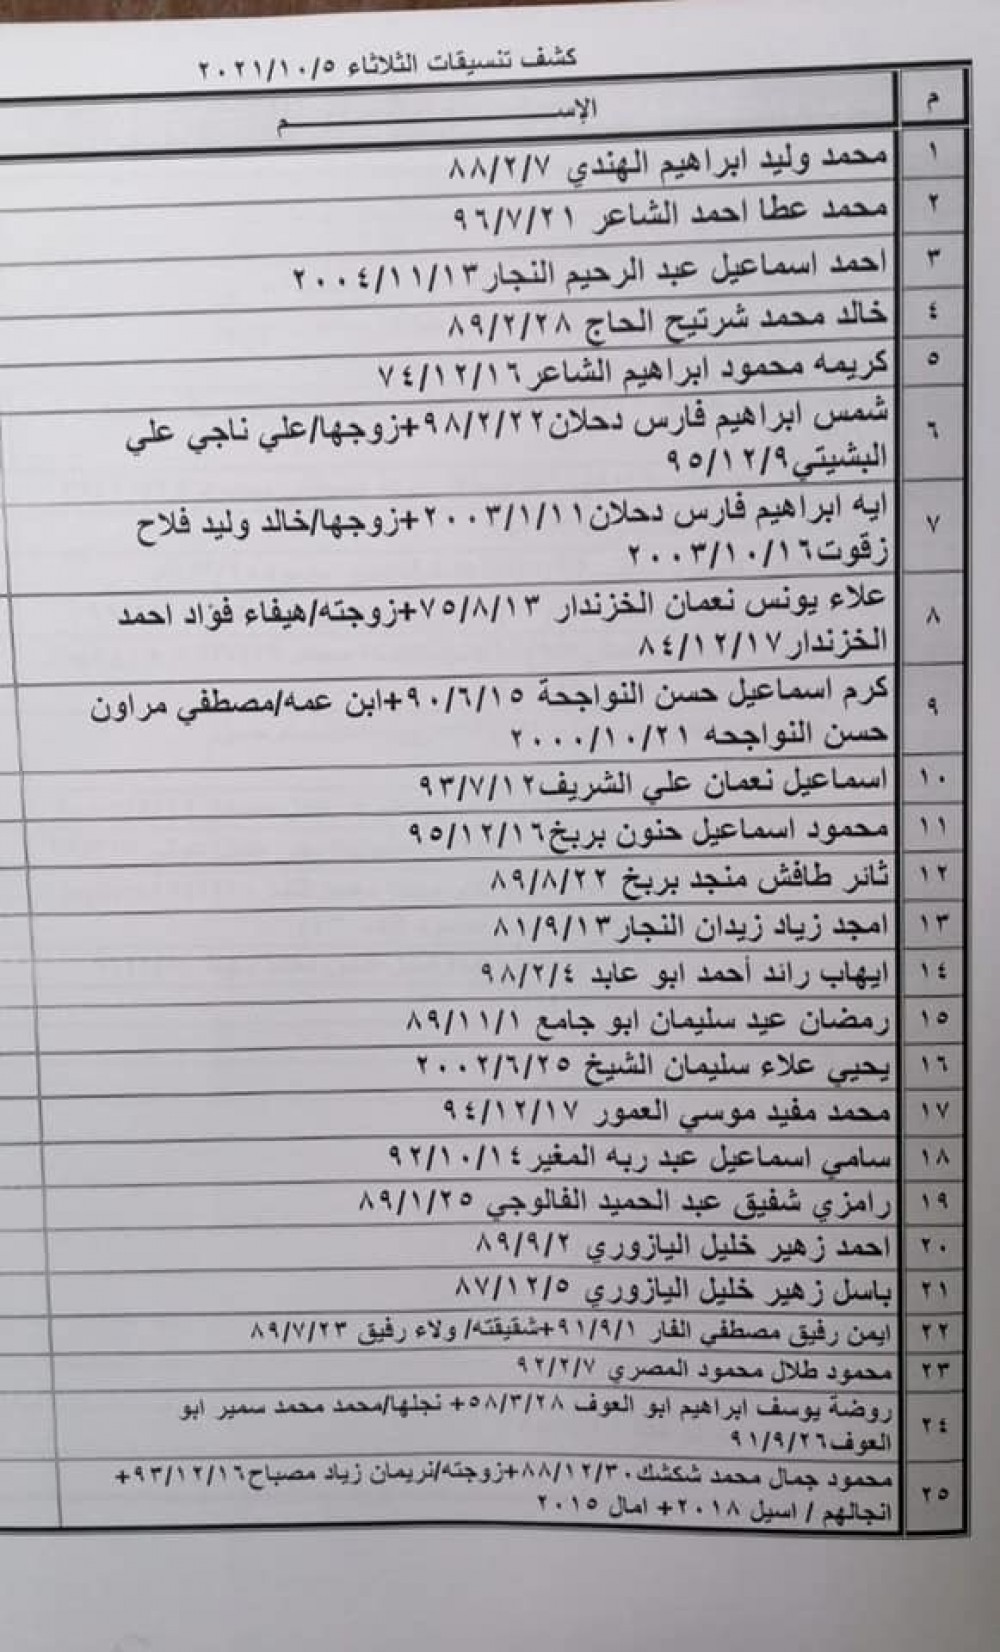 كشف تنسيقات الثلاثاء ٢٠٢١/١٠/٥
م الإســــــــــم
١ محمد وليد ابراهيم الهندي ٨٨/٢/٧
٢ محمد عطا احمد الشاعر ٩٦/٧/٢١
٣ احمد اسماعيل عبد الرحيم النجار٢٠٠٤/١١/١٣
٤ خالد محمد شرتيح الحاج ٨٩/٢/٢٨
٥ كريمه محمود ابراهيم الشاعر٧٤/١٢/١٦
٦ شمس ابراهيم فارس دحلان٩٨/٢/٢٢+زوجها/علي ناجي علي
البشيتي٩٥/١٢/٩
٧ ايه ابراهيم فارس دحلان٢٠٠٣/١/١١+زوجها/خالد وليد فلاح
زقوت٢٠٠٣/١٠/١٦
٨ علاء يونس نعمان الخزندار ٧٥/٨/١٣+زوجته/هيفاء فؤاد احمد
الخزندار٨٤/١٢/١٧
٩ كرم اسماعيل حسن النواجحة ٩٠/٦/١٥+ابن عمه/مصطفي مراون
حسن النواجحه ٢٠٠٠/١٠/٢١
١٠ اسماعيل نعمان علي الشريف٩٣/٧/١٢
١١ محمود اسماعيل حنون بربخ٩٥/١٢/١٦
١٢ ثائر طافش منجد بربخ ٨٩/٨/٢٢
١٣ امجد زياد زيدان النجار٨١/٩/١٣
١٤ ايهاب رائد أحمد ابو عابد ٩٨/٢/٤
١٥ رمضان عيد سليمان ابو جامع ٨٩/١١/١
١٦ يحيي علاء سليمان الشيخ ٢٠٠٢/٦/٢٥
١٧ محمد مفيد موسي العمور ٩٤/١٢/١٧
١٨ سامي اسماعيل عبد ربه المغير٩٢/١٠/١٤
١٩ رامزي شفيق عبد الحميد الفالوجي ٨٩/١/٢٥
٢٠ احمد زهير خليل اليازوري ٨٩/٩/٢
٢١ باسل زهير خليل اليازوري ٨٧/١٢/٥
٢٢ ايمن رفيق مصطفي الفار ٩١/٩/١+شقيقته/ ولاء رفيق ٨٩/٧/٢٣
٢٣ محمود طلال محمود المصري ٩٢/٢/٧
٢٤ روضة يوسف ابراهيم ابو العوف ٥٨/٣/٢٨+ نجلها/محمد محمد سمير ابو
العوف٩١/٩/٢٦
٢٥ محمود جمال محمد شكشك٨٨/١٢/٣٠+زوجته/نريمان زياد مصباح٩٣/١٢/١٦+
انجالهم / اسيل ٢٠١٨+ امال ٢٠١٥